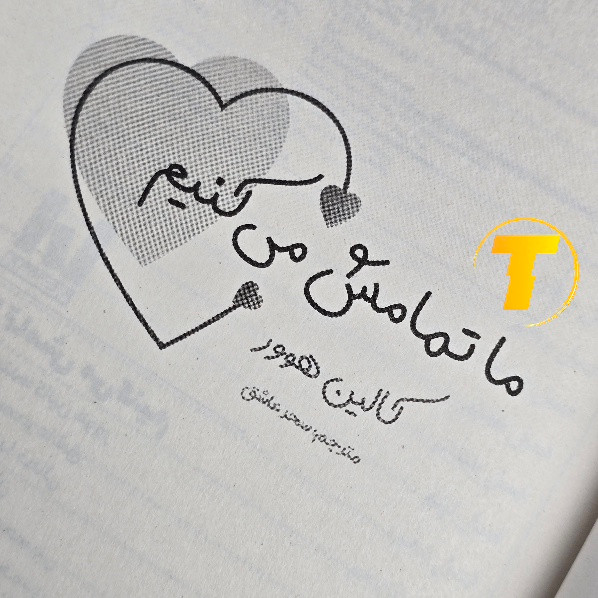 ما تمامش می کنیم
کالین هوور
مترجم: سحر عاشق
T